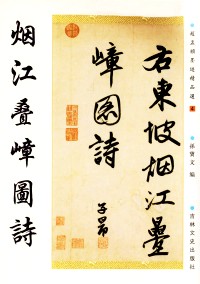 烟江叠嶂圖詩
右東坡烟江疊
嶂圖詩
子昂
趙孟頫墨迹精品選
4
孫寶文 編
吉林文史出版社